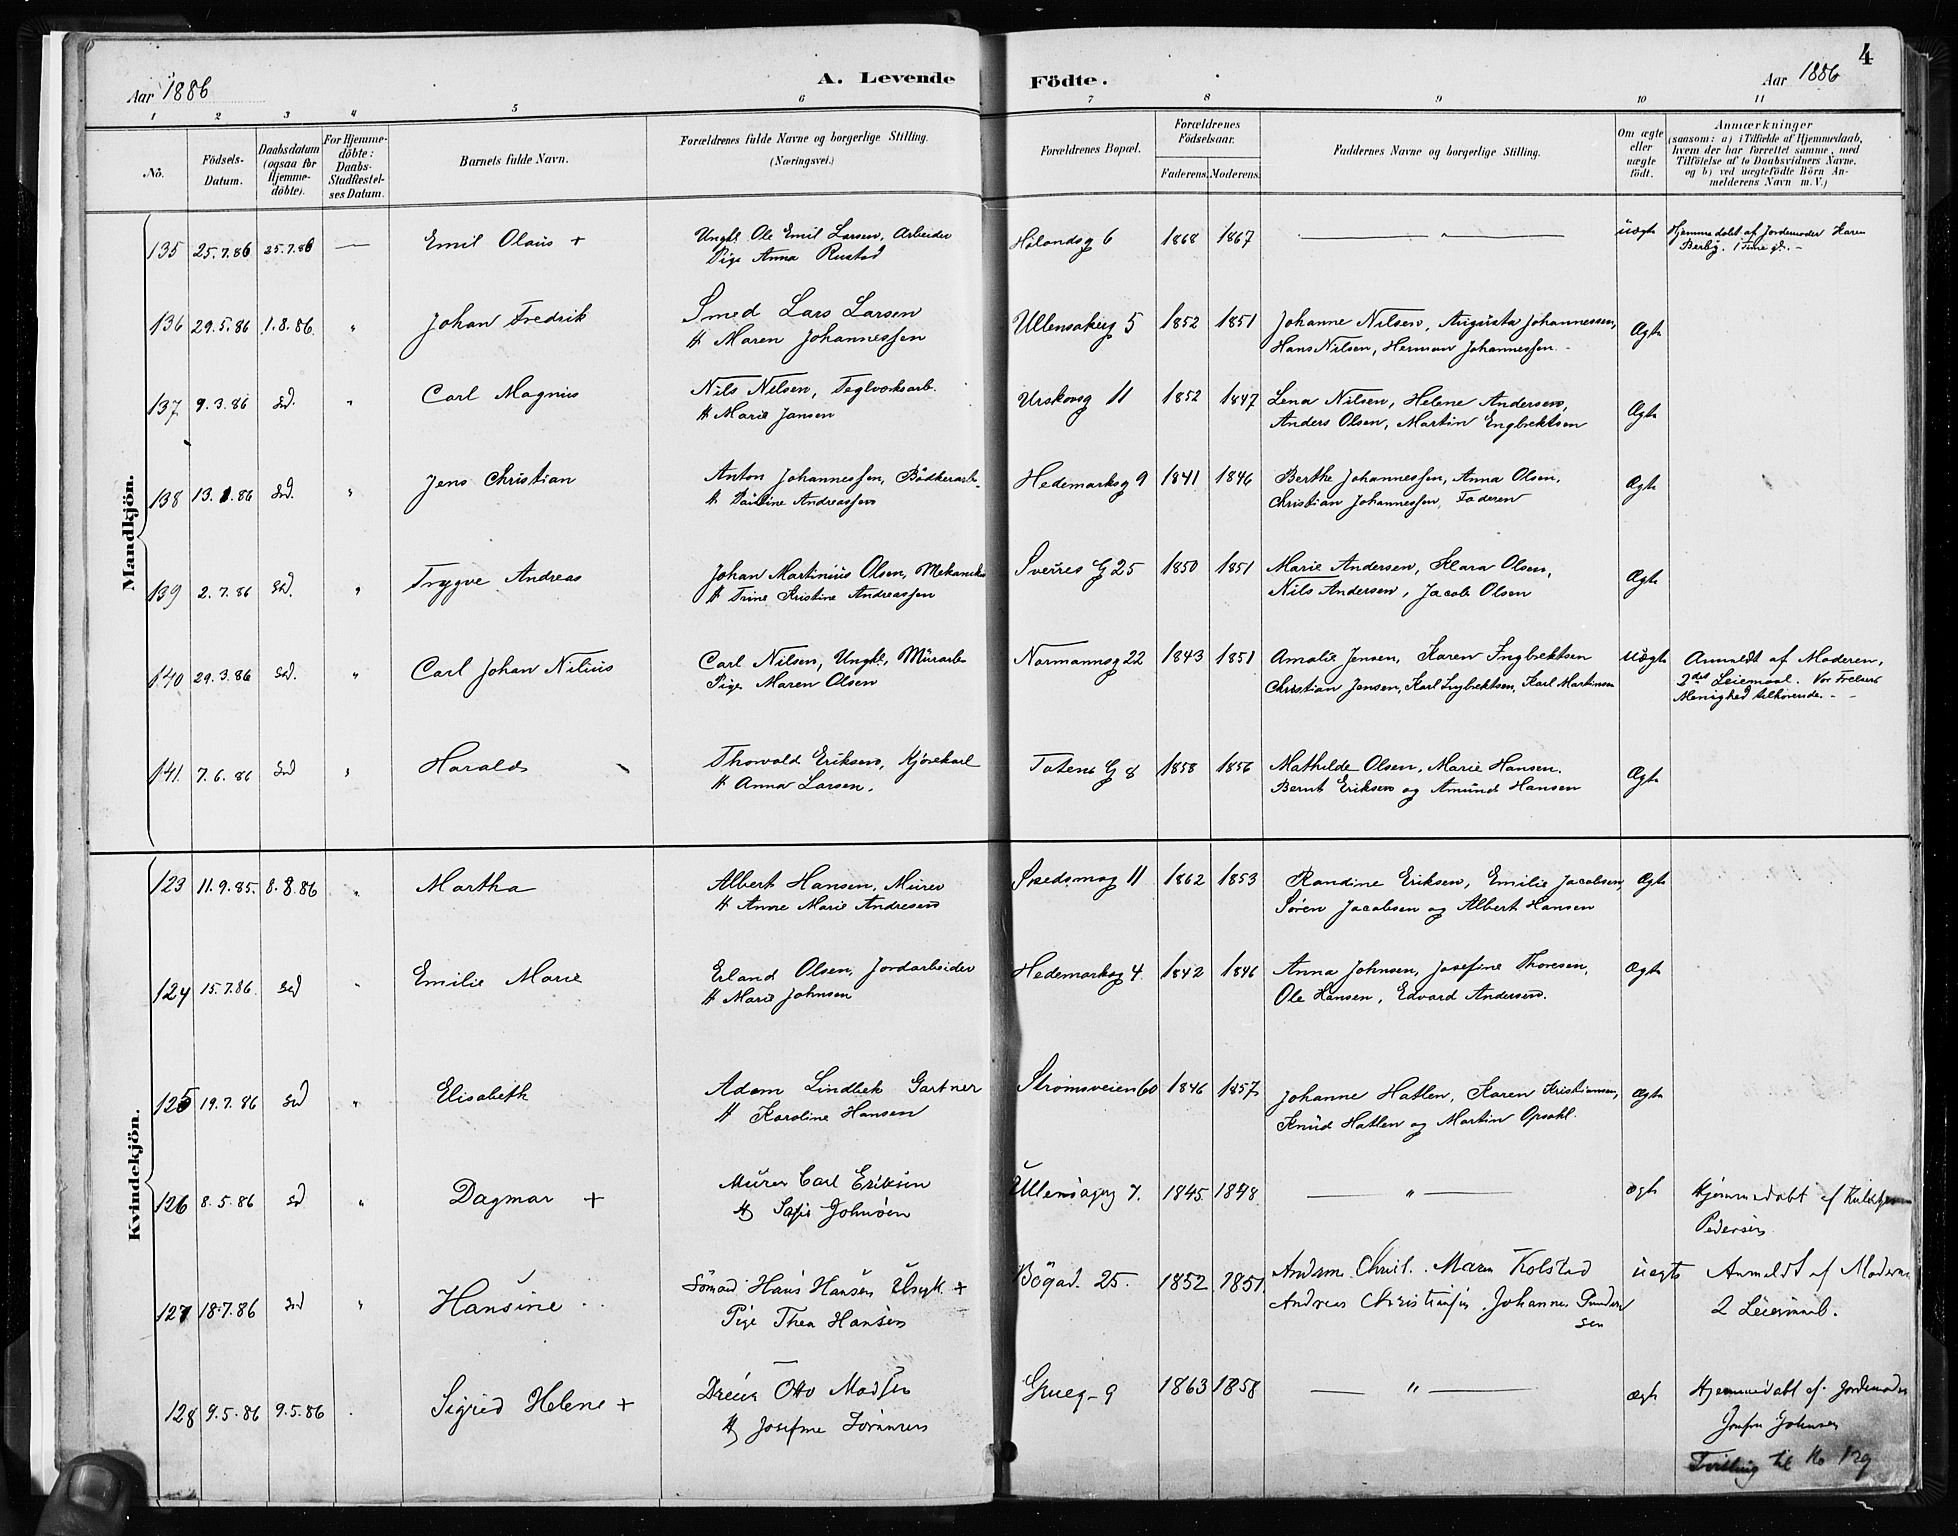 4
Aar 1886
A. Levende
Födte.
Aar 1886
1 2 3 4 5 6 7 8 9 10 11
No.
Födsels-Datum.
Daabsdatum (ogsaa for Hjemme-döbte).
For Hjemme-döbte: Daabs-Stadfæstel-ses Datum.
Barnets fulde Navn.
Forældrenes fulde Navne og borgerlige Stilling.
(Næringsvei.)
Forældrenes Bopæl.
Forældrenes Födselsaar.
Faderens. Moderens.
Faddernes Navne og borgerlige Stilling.
Om ægte eller uægte födt.
Anmærkninger
(saasom: a) i Tilfælde af Hjemmedaab,
hvem der har forrettet samme, med
Tilföielse af to Daabsvidners Navne,
og b) ved uægtefödte Börn An-
melderens Navn m. V.)
Mandkjön.
135 25.7.86 25.7.86 — Emil Olaus + Ungk. Ole Emil Larsen, Arbeider Hölandsg 6 1868 1867 — " — uægte Hjemmedøbt af Jordemoder Karen
Pige Anna Rustad Berby. 1 Time gl. -
136 29.5.86 1.8.86 " Johan Fredrik Smed Lars Larsen Ullensakerg 5 1852 1851 Johanne Nilsen, Augusta Johannessen, Ægte
H Maren Johannessen Hans Nilsen, Herman Johannessen -
137 9.3.86 sd. " Carl Magnus Nils Nilsen, Teglværksarb. Urskovsg 11 1852 1847 Lena Nilsen, Helene Andersen, Ægte
H Marie Jansen Anders Olsen, Martin Engbrektsen
138 13.1.86 sd. " Jens Christian Anton Johannessen, Bödkerarb. Hedemarksg 9 1841 1846 Berthe Johannessen, Anna Olsen, Ægte
H Pauline Andreassen Christian Johannessen, Faderen
139 2.7.86 sd. " Trygve Andreas Johan Martinius Olsen, Mekaniker Sverres G 25 1850 1851 Marie Andersen, Klara Olsen, Ægte
H Trine Kristine Andreassen Nils Andersen, Jacob Olsen
140 29.3.86 sd. " Carl Johan Nilius Carl Nilsen, Ungk., Murarb Normannsg 22 1843 1851 Amalie Jensen, Karen Ingbrektsen uægte Anmeldt af Moderen,
Pige Maren Olsen Christian Jensen, Karl Ingbrektsen, Karl Martinsen 2det Leiemaal. Vor Frelsers
Menighed tilhörende. - -
141. 7.6.86 sd " Harald Thorvald Eriksen, Kjörekarl Totens G 8 1858 1856 Mathilde Olsen, Marie Hansen. Ægte
H Anna Larsen. Bernt Eriksen og Amund Hansen
Kvindekjön.
123 11.9.85. 8.8.86 " Martha Albert Hansen, Murer Skedsmog 11 1862 1853 Randine Eriksen, Emilie Jacobsen, Ægte
H Anne Marie Andresen Sören Jacobsen og Albert Hansen
124 15.7.86. sd " Emilie Marie Erland Olsen, Jordarbeider Hedemarksg 4. 1842 1846 Anna Johnsen, Josefine Thoresen, Ægte
H Marie Johnsen Ole Hansen, Edvard Andersen.
125 19.7.86 sd " Elisabeth Adam Lindbek Gartner Strömsveien 60 1846 1857 Johanne Hatlen, Karen Kristiansen, Ægte
H Karoline Hansen Knud Hatlen og Martin Opsahl.
126 8.5.86 sd " Dagmar + Murer Carl Eriksen Ullensagerg 7. 1845 1848 — " — ægte Hjemmedøbt af
H Sofie Johnsen Pedersen
127 18.7.86 sd " Hansine Sömand Hans Hansen Ungk. + Bögad. 25. 1852 1851. Christ. Maren Kolstad uægte Anmeldt af Moderen
Pige Thea Hansen Andreas Christiansen. Johannes Gundersen 2 Leiermaal.
128 9.5.86 9.5.86 Sigrid Helene + Dreier Otto Madsen Grueg - 9 1863 1858 — " — ægte Hjemmedøbt af Jordemoder
H Josefine Johnsen
Tvilling til No 129